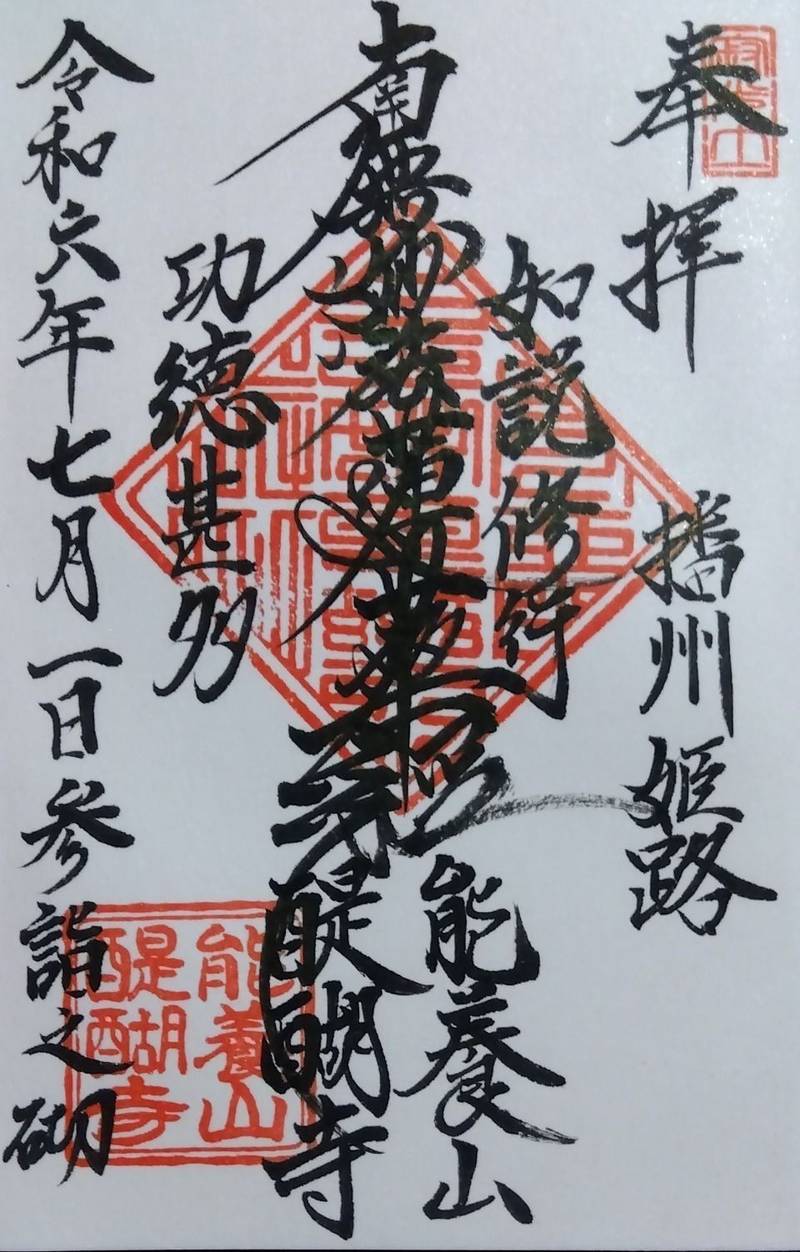 奉拝
播州姫路
如説修行
能養山
南無妙法蓮華経
醍醐寺
功徳甚多
令和六年七月一日参詣之砌
寂光土
能養山
醍醐寺